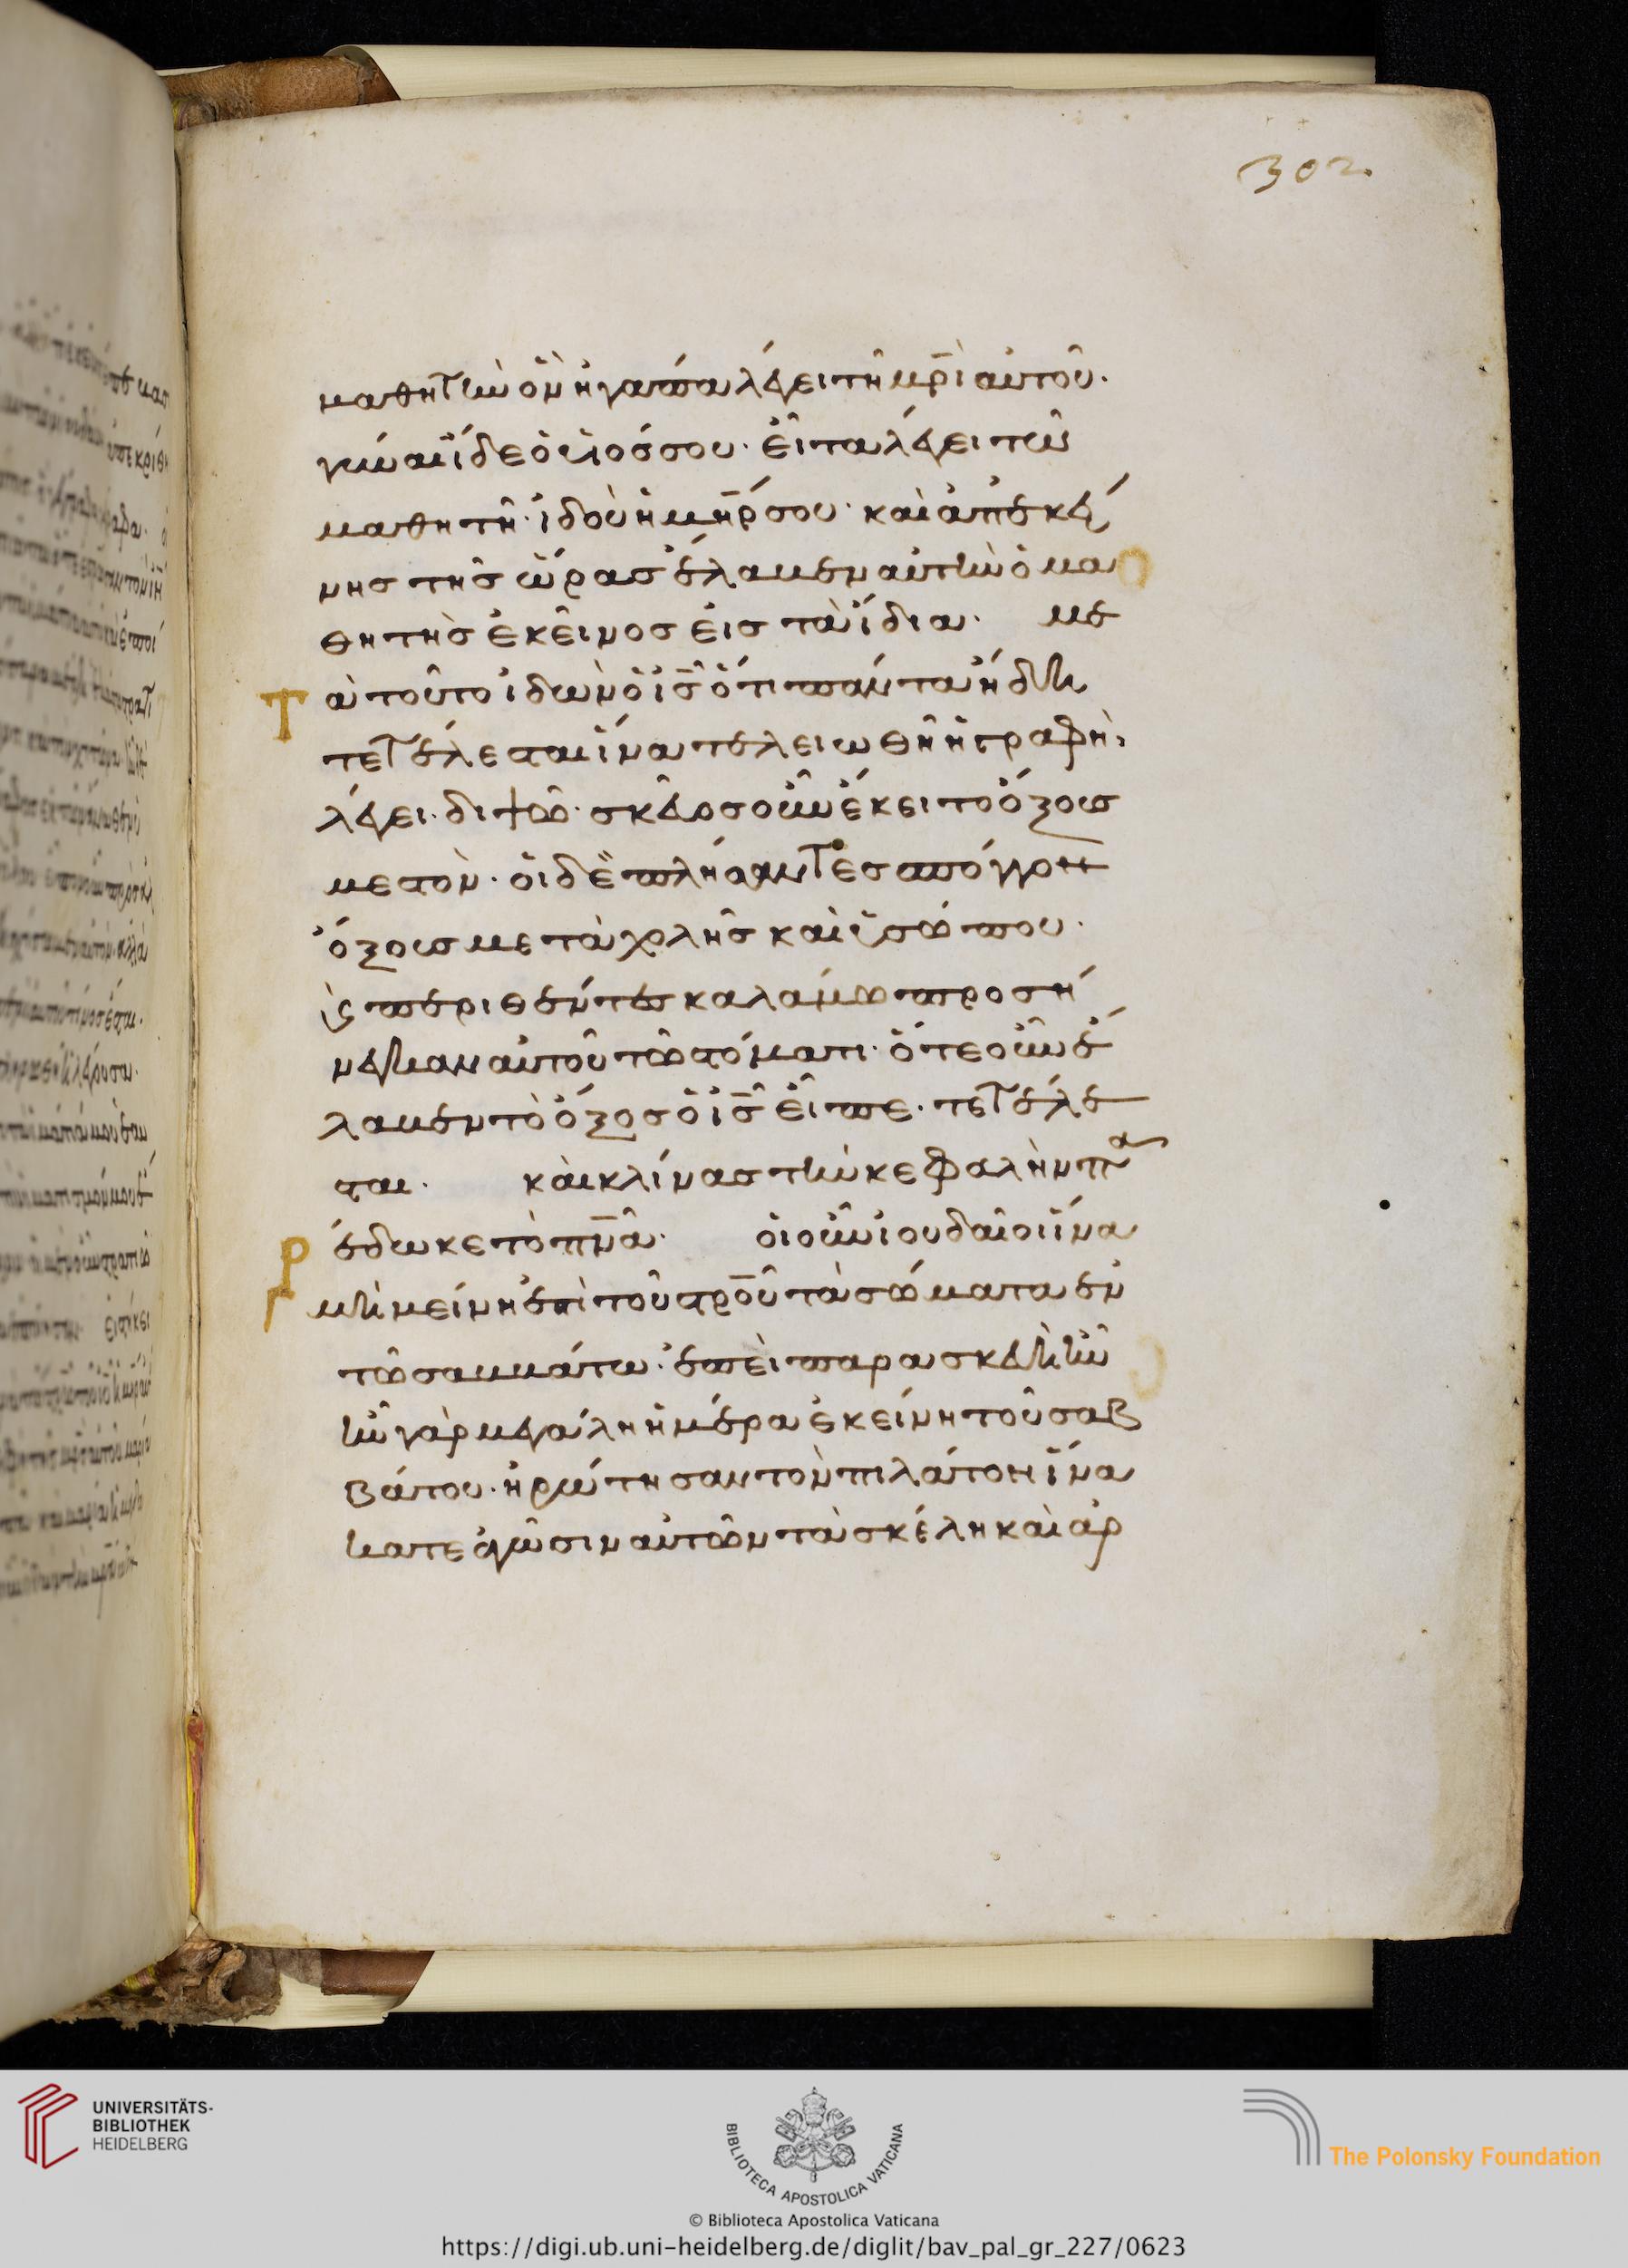 302.
μαθητὴν ὃν ἠγάπα λέγει τῆ μρ̅ὶ αὐτοῦ·
γύναι ἴδε ὁ υἱός σου· εἶτα λέγει τῶ
μαθητῆ· ἰδοὺ ἡ μη̅ρ σου· καὶ ἀπ ἐκεί
νης τῆς ὥρας ἔλαβεν αὐτὴν ὁ μα
θητὴς ἐκεῖνος εἰς τὰ ἴδια· Με
Τὰ τοῦτο ἰδὼν ὁ ις̅ ὅτι πάντα ἤδη
τετέλεσται ἵνα τελειωθῆ ἡ γραφὴ·
λέγει· διψῶ· σκεῦος οὖν ἔκειτο ὄξους
μεστὸν· οἱ δὲ πλήσαντες σπόγγον
ὄξους μετὰ χολῆς καὶ ὑσσώπου·
καὶ περιθέντες καλάμω προσή
νεγκαν αὐτοῦ τῶ στόματι· ὅτε οὖν ἔ
λαβεν τὸ ὄξος ὁ ις̅ εἶπε· τετέλε
σται· καὶ κλίνας τὴν κεφαλὴν πα
Ρέδωκε τὸ πν̅α· οἱ οὖν ἰουδαῖοι ἵνα
μὴ μείνη ἐπὶ τοῦ στρο̅ῦ τὰ σώματα ἐν
τῶ σαββάτω· ἐπεὶ παρασκευὴ ἦν
ἦν γὰρ μεγάλη ἡ ἡμέρα ἐκείνη τοῦ σαβ
βάτου· ἠρώτησαν τὸν πιλάτον ἵνα
κατεαγῶσιν αὐτῶν τὰ σκέλη καὶ ἀρ
UNIVERSITÄTS-
BIBLIOTHEK
HEIDELBERG
BIBLIOTECA APOSTOLICA VATICANA
The Polonsky Foundation
© Biblioteca Apostolica Vaticana
https://digi.ub.uni-heidelberg.de/diglit/bav_pal_gr_227/0623